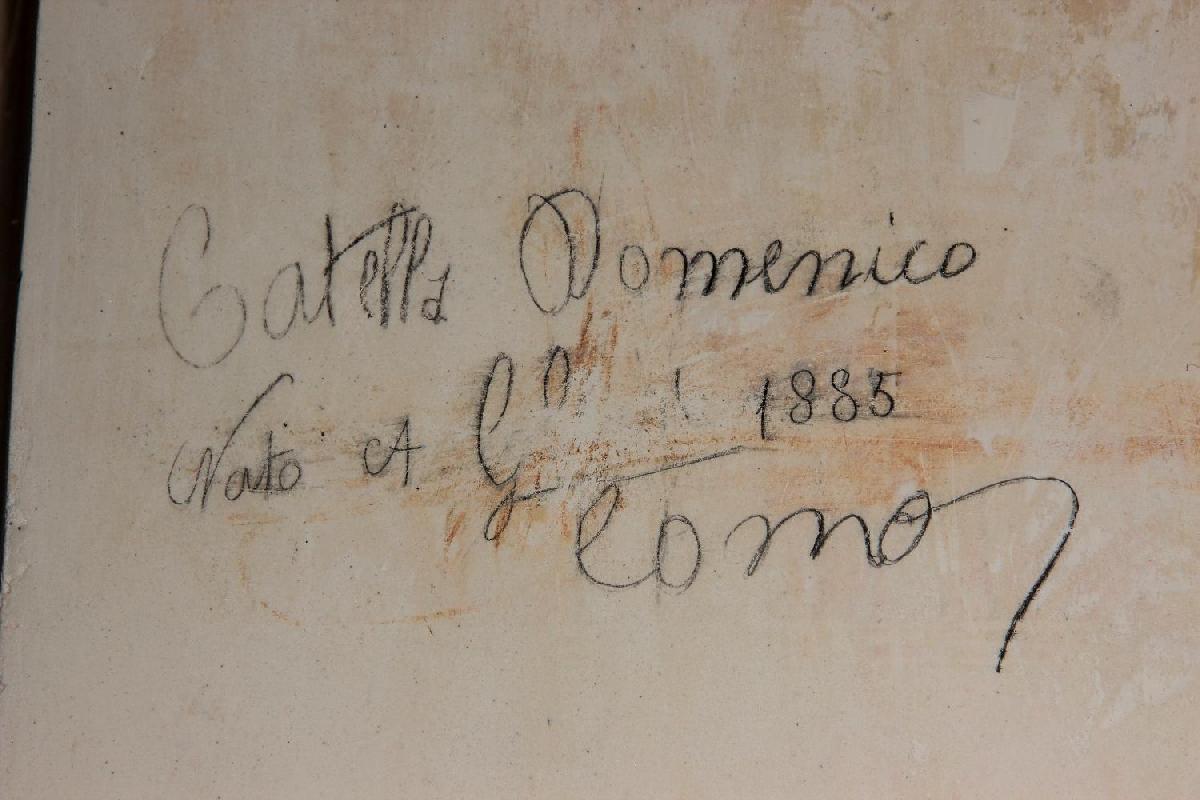 Gatella Domenico
Nato A 1885
Como